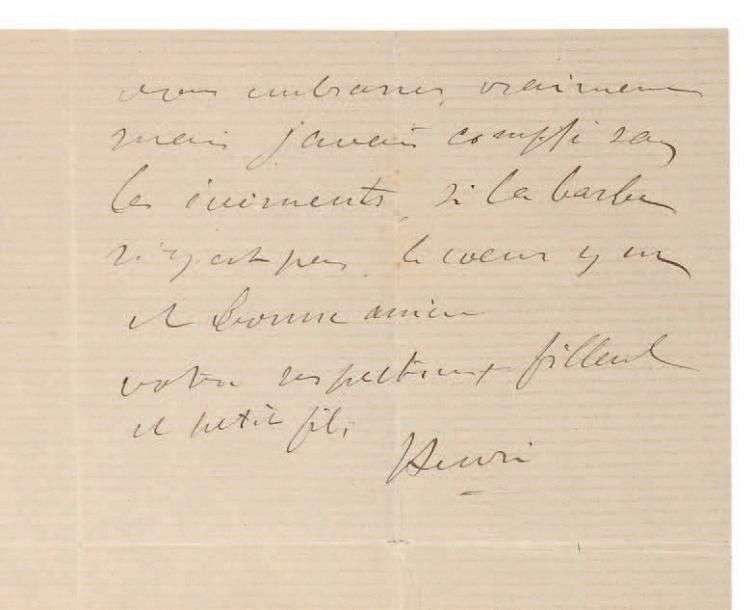 vous embrasser vraiment
mais j'avais compté sans
les événements, si la barbe
n'y est pas, le coeur y est
et bonne année
votre respectueux filleul
et petit fils
Henri